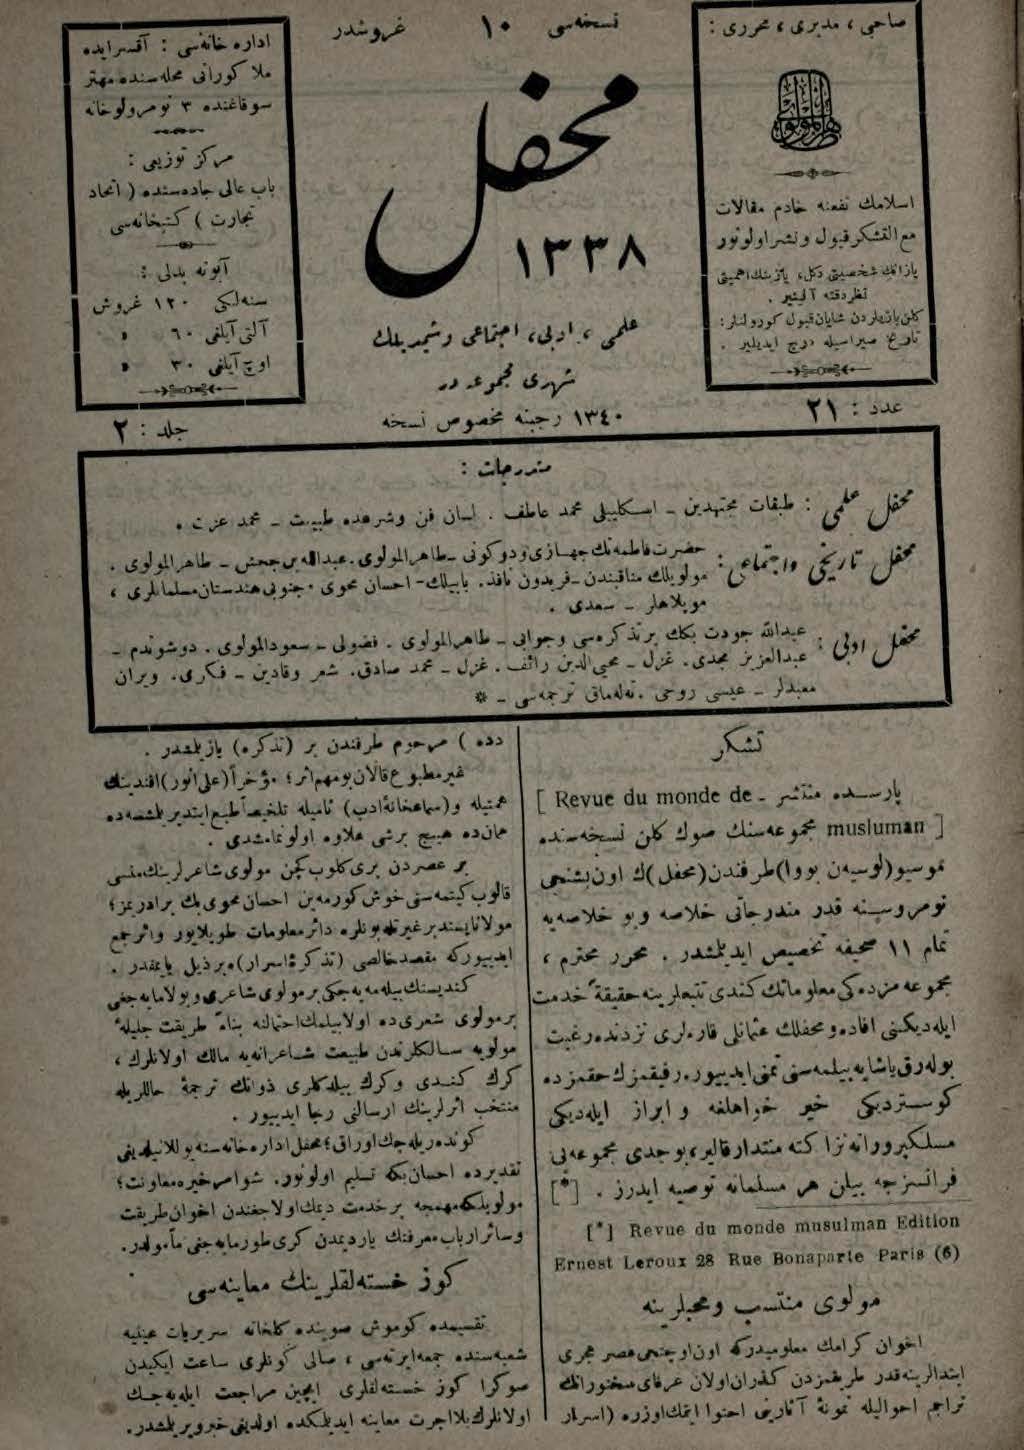 نسخه‌سی ١٠ غروشدر
صاحبی ، مدیری ، محرری :
اسلامك نفعنه خادم مقالات
مع التشکر قبول ونشر اولونور
یازانك شخصیتی دکل، یازینك اهمیتی
نظردقته آلینیر .
کلن یازیلردن شایان قبول کورولنلر:
تاریخ صیراسیله درج ایدیلیر .
محفل
١٣٣٨
علمی ، ادبی، اجتماعی
شهری مجموعه در
١٣٤٠ رجبنه مخصوص نسخه
اداره خانه‌سی : آقسرایده
ملا کورانی محله‌سنده مهتر
سوقاغنده ٣ نومرولوخانه
مرکز توزیعی :
باب عالی جاده‌سنده ( اتحاد
تجارت ) کتبخانه‌سی
آبونه بدلی :
سنه‌لکی ١٢٠ غروش
آلتی آیلغی ٦٠ »
اوچ آیلغی ٣٠ »
عدد : ٢١
جلد : ٢
مندرجات :
محفل علمی : طبقات مجتهدین ـ اسکلیبلی محمد عاطف . لسان فن وشرعده طبیعت ـ محمد عزت .
محفل تاریخی واجتماعی : حضرت فاطمه‌نك جهازی ودوکونی ـ طاهرالمولوی. عبدالله بن جحش ـ طاهرالمولوی .
مولویلك مناقبندن ـ فریدون نافذ. بابیلك ـ احسان محوی . جنوبی هندستان مسلمانلری ،
موپلاهلر ـ سعدی .
محفل ادبی : عبدالله جودت بکك بر تذکره‌سی وجوابی ـ طاهرالمولوی . فضولی ـ سعودالمولوی . دوشوندم ـ
عبدالعزیز مجدی. غزل ـ محیی‌الدین رائف. غزل ـ محمد صادق. شعر وقادین ـ فکری. ویران
معبدلر ـ عیسی روحی . ته‌له‌ماق ترجمه‌سی ـ *
تشکر
پارسده منتشر ـ Revue du monde de ]
[ musluman مجموعه‌سنك صوك کلن نسخه‌سنده
موسیو (لوسیه‌ن بووا) طرفندن (محفل)ك اون بشنجی
نومروسنه قدر مندرجاتی خلاصه و بو خلاصه‌یه
تمام ١١ صحیفه تخصیص ایدیلمشدر . محرر محترم ،
مجموعه مزده‌کی معلوماتك کندی تتبعلرینه حقیقةً خدمت
ایله‌دیکنی افاده ومحفلك عثمانلی قارءلری نزدنده رغبت
بوله‌رق یاشایه‌بیلمه‌سنی تمنی ایدییور. رفیقمزك حقمزده
کوستردیکی خیر خواهلغه و ابراز ایله‌دیکی
مسلکپرورانه نزاکته منتدار قالیر، بوجدی مجموعه‌یی
فرانسزجه بیلن هر مسلمانه توصیه ایدرز . [*]
[*] Revue du monde musulman Edition
Ernest Leroux 28 Rue Bonaparte Paris (6)
مولوی منتسب ومحبلرینه
اخوان کرامك معلومیدرکه اون اوچنجی عصر هجری
ابتدالرینه قدر طریقمزدن کذران اولان عرفای سخنورانك
تراجم احوالیله نمونهٔ آثارینی احتوا ایتمك اوزره (اسرار
دده ) مرحوم طرفندن بر (تذکره) یازیلمشدر .
غیرمطبوع قالان بومهم اثر ؛ مؤخراً (علی انور) افندینك
همتیله و (سماعخانهٔ ادب) نامیله تلخیصاً طبع ایتدیریلمشسه‌ده
همان ده هیچ برشی علاوه اولونمامشدی .
بر عصردن بری کلوب کچن مولوی شاعرلرینك منسی
قالوب کیتمه‌سنی خوش کورمه‌ین احسان محوی بك برادریمز ؛
مولاناپسند بر غیرتله بونلره دائر معلومات طوپلایور واثر جمع
ایدییورکه مقصد خالصی (تذکرهٔ اسرار)ه برذیل یاپمقدر .
کندیسنك بیله‌مه‌یه‌جکی بر مولوی شاعری وبولامایه‌جغی
بر مولوی شعری ده اولابیلمك احتمالنه بناءً طریقت جلیلهٔ
مولویه سالکلرندن طبیعت شاعرانه‌یه مالك اولانلرك ،
کرك کندی وکرك بیله‌کلری ذواتك ترجمهٔ حاللریله
منتخب اثرلرینك ارسالنی رجا ایدییور .
کونده‌ریله‌جك اوراق ؛ محفل اداره خانه‌سنه یوللانیلدیغی
تقدیرده احسان بکه تسلیم اولونور. شو امر خیره معاونت ؛
مولویلکه مهمجه بر خدمت دیمك اولاجغندن اخوان طریقت
وسائر ارباب معرفتك یاردیمدن کری طورمایه‌جغی مأمولدر.
کوز خسته‌لقلرینك معاینه‌سی
تقسیمده کوموش صوینده کلخانه سریریات عینیه
شعبه‌سنده جمعه‌ایرته‌سی ، صالی کونلری ساعت ایکیدن
صوکرا کوز خسته‌لقلری ایچین مراجعت ایله‌یه‌جك
اولانلرك بلااجرت معاینه ایدیلمکده اولدیغی خبرویریلمشدر.